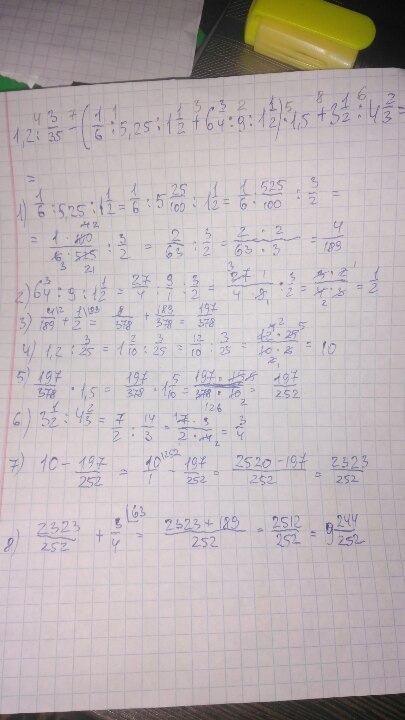 1,2 : 3/35 - (1/6 : 5,25 : 1 1/2 + 6 3/4 : 9 : 1 1/2) · 1,5 + 3 1/2 : 4 2/3 =
=
1) 1/6 : 5,25 : 1 1/2 = 1/6 : 5 25/100 : 1 1/2 = 1/6 : 525/100 : 3/2 =
= : 3/2 = 2/63 : 3/2 = 2 · 2/63 · 3 = 4/189
2) 6 3/4 : 9 : 1 1/2 = 27/4 : 9/1 : 3/2 = : 3/2 = = 1/2
3) 4/189 + 1/2 = 8/378 + 189/378 = 197/378
4) 1,2 : 3/25 = 1 2/10 : 3/25 = 12/10 : 3/25 = 12 · 25/10 · 3 = 10
5) 197/378 · 1,5 = 197/378 · 1 5/10 = 197 · 15/378 · 10 = 197/252
6) 3 1/2 : 4 2/3 = 7/2 : 14/3 = 7 · 3/2 · 14 = 3/4
7) 10 - 197/252 = 10/1 - 197/252 = 2520 - 197/252 = 2323/252
8) 2323/252 + 3/4 = 2323 + 189/252 = 2512/252 = 9 244/252